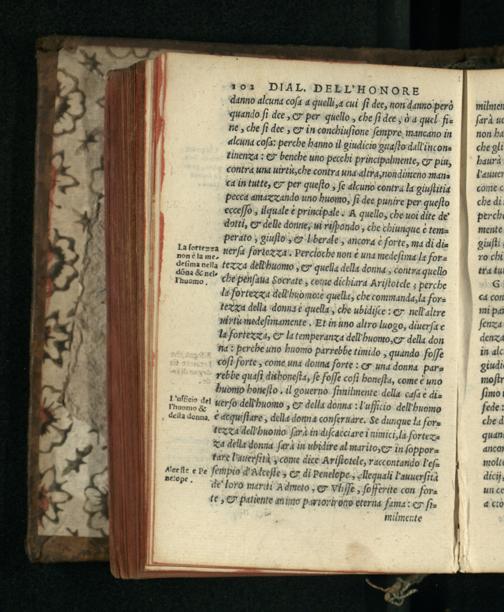 102 DIAL. DELL'HONORE
danno alcuna cosa a quelli, a cui si dee, non danno però
quando si dee, & per quello, che si dee, ò a quel fi=
ne, che si dee, & in conchiusione sempre mancano in
alcuna cosa: perche hanno il giudicio guasto dall'incon=
tinenza: & benche uno pecchi principalmente, & piu,
contra una virtù, che contra una altra, nondimeno man=
ca in tutte, & per questo, se alcuno contra la giustitia
pecca amazzando uno huomo, si dee punire per questo
eccesso, ilquale è principale. A quello, che uoi dite de'
dotti, & delle donne, ui rispondo, che chiunque è tem=
perato, giusto, & liberale, ancora è forte, ma di di=
uersa fortezza. Percioche non è una medesima la for=
tezza dell'huomo, & quella della donna, contra quello
che pensaua Socrate, come dichiara Aristotele; perche
la fortezza dell'huomo è quella, che commanda, la for=
tezza della donna è quella, che ubidisce: & nell'altre
virtù medesimamente. Et in uno altro luogo, diuersa è
la fortezza, & la temperanza dell'huomo, & della don
na: perche uno huomo parrebbe timido, quando fosse
così forte, come una donna forte: & una donna par=
rebbe quasi dishonesta, se fosse così honesta, come è uno
huomo honesto. il gouerno similmente della casa è di=
uerso dell'huomo, & della donna: l'ufficio dell'huomo
è acquistare, della donna conseruare. Se dunque la for=
tezza dell'huomo sarà in discacciare i nimici, la fortez=
za della donna sarà in ubidire al marito, & in soppor=
tare l'auuersità, come dice Aristotele, raccontando l'es=
sempio d'Alceste, & di Penelope, allequali l'auuersità
de' loro mariti Admeto, & Vlisse, sofferite con for=
te, & patiente animo partorirono eterna fama: & si=
milmente
La fortezza
non è la me=
desima nella
dōna & nel=
l'huomo.
L'ufficio del
l'huomo &
della donna.
Alceste e Pe
nelope.